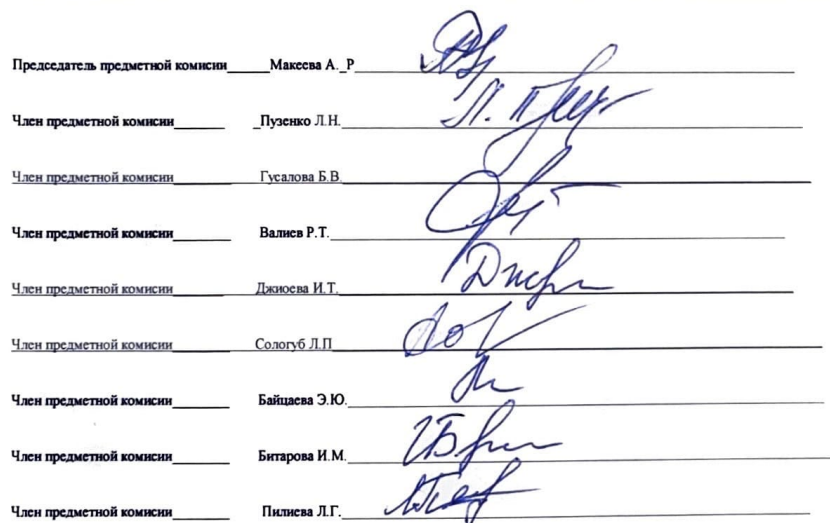 Председатель предметной комисии______Макеева А._Р
Член предметной комисии________ _Пузенко Л.Н.
Член предметной комисии________ Гусалова Б.В.
Член предметной комисии________ Валиев Р.Т.
Член предметной комисии________ Джиоева И.Т.
Член предметной комисии________ Сологуб Л.П
Член предметной комисии________ Байцаева Э.Ю.
Член предметной комисии________ Битарова И.М.
Член предметной комисии________ Пилиева Л.Г.